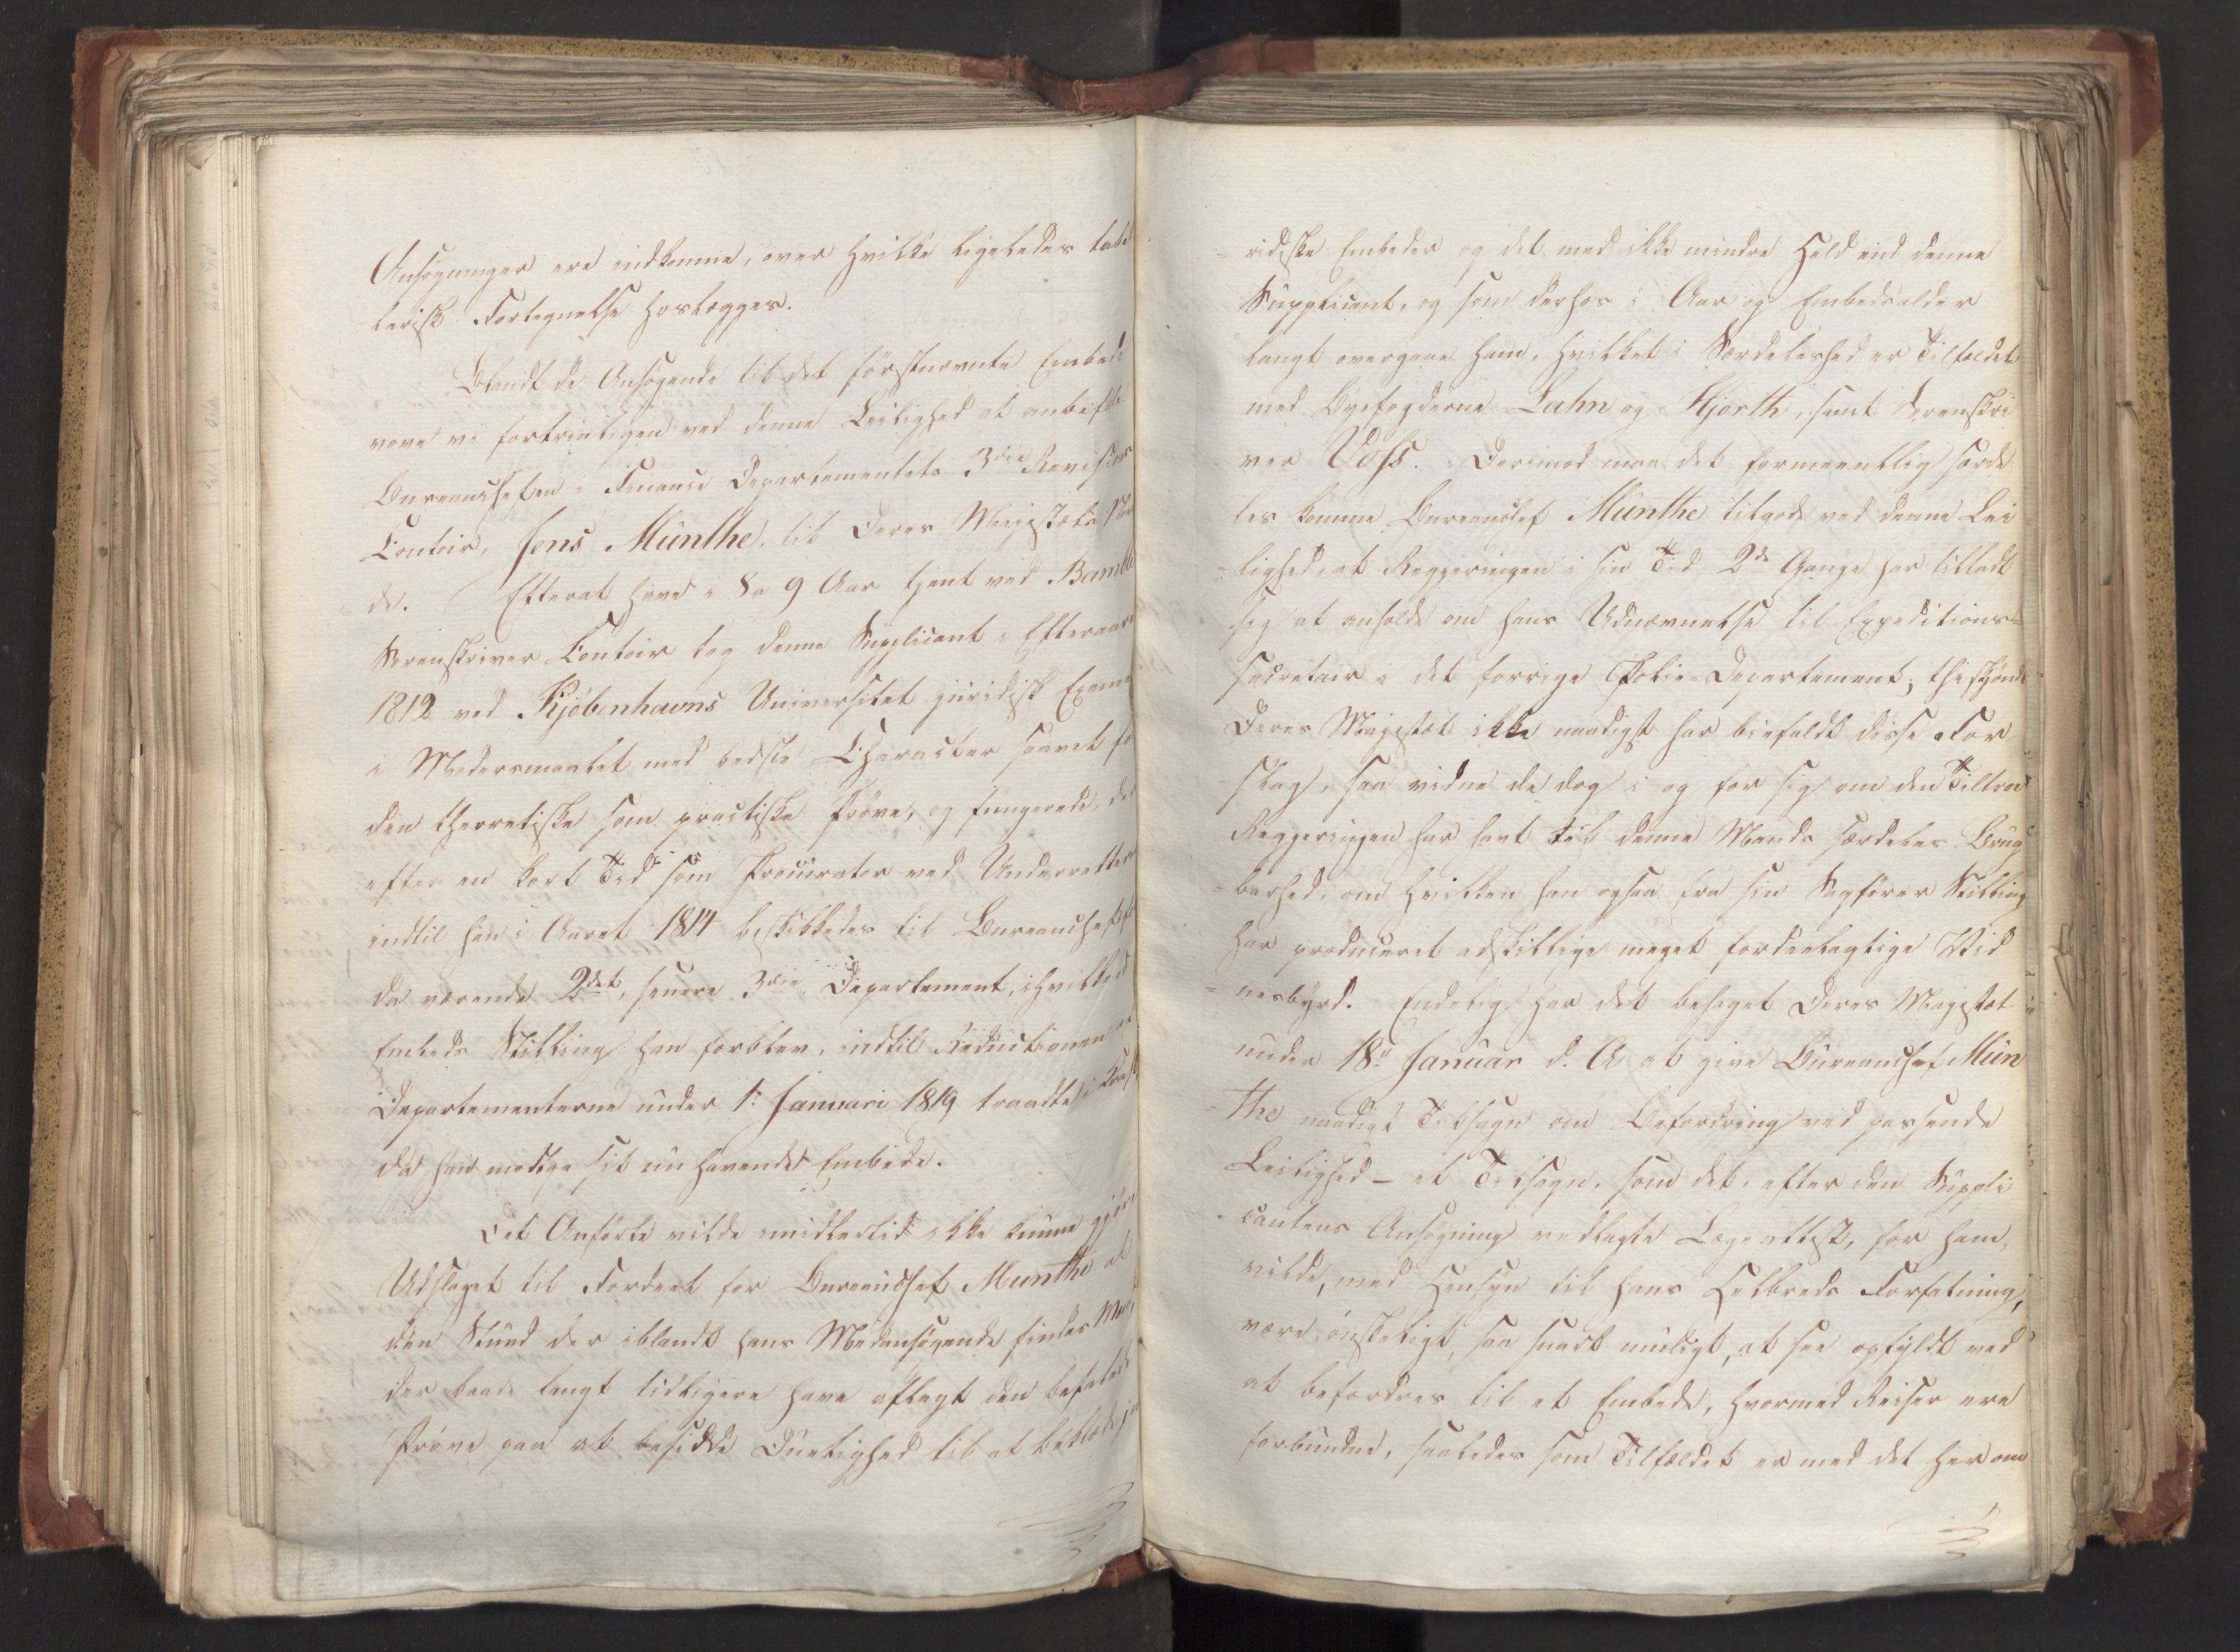 Ansøgninger ere indkomne, over hvilke ligeledes tabel
larisk Fortegnelse hoslægges.
Blandt de Ansøgende til det förstnævnte Embede
vove vi fortrinligen ved denne Leilighed at anbefale
Bureauchefen i Finance Departementets 3die Revisions
Contoir, Jens Münthe, til Deres Majestæts Naa
de. Efterat have i 8 a 9 Aar tjent ved Bamble
Sorenskriver Contoir tog denne Supplicant i Efteraaret
1812 ved Kjøbenhavns Universitet juridisk Examen
i Modersmaalet med bedste Character saavel for
den theoretiske som practiske Prøve, og fungerede, der
efter en kort Tid som Procurator ved Underretterne
indtil han i Aaret 1814 beskikkedes til Bureauchef i
da værende 2det, senere 3die Departement, i hvilken
Embeds Stilling han forblev, indtil Reductionen af
Departementerne under 1: Januari 1819 traadte i Kraft,
da han modtog sit nu havende Embede.
Det Anførte vilde imidlertid ikke kunne gjøre
Udslaget til Fordeel for Bureauchef Munthe al
den Stund der iblandt hans Medansøgende findes Mænd,
der baade langt tidligere have aflagt den befalede
Prøve paa at besidde Duelighed til at beklæde ju
= ridiske Embeder og det med ikke mindre Held end denne
Supplicant, og som derhos i Aar og Embedsalder
langt overgaae ham, hvilket i Særdeleshed er Tilfældet
med Byefogderne Lahn og Hjorth, samt Sorenskri
ver Voss. Derimod maa det formeentlig særde
les komme Bureauchef Münthe tilgode ved denne Lei
= lighed, at Regjeringen i sin Tid 2de Gange har tilladt
sig at anholde om hans Udnævnelse til Expeditions=
secretair i det forrige Politie-Departement; thi skjøndt
Deres Majestæt ikke naadigst har biefaldt disse For
slag, saa vidne de dog i og for sig om den Tiltroe
Regjeringen har havt til denne Mands særdeles Brug
= barhed, om hvilken han ogsaa fra sin Sagfører Stilling
har produceret adskillige meget fordeelagtige Vid
= nesbyrd. Endelig har det behaget Deres Majestæt
under 18d Januar d. A. at give Bureauchef Mün
= the naadigst Tilsagn om Befordring ved passende
Leilighed – et Tilsagn, som det, efter den Suppli
cantens Ansøgning vedlagte Lægeattest, for ham,
vilde, med Hensyn til hans Helbreds Forfatning,
være ønskeligt, saa snart muligt, at see opfyldt ved
at befordres til et Embede, hvormed Reiser ere
forbundne, saaledes som Tilfældet er med det her om